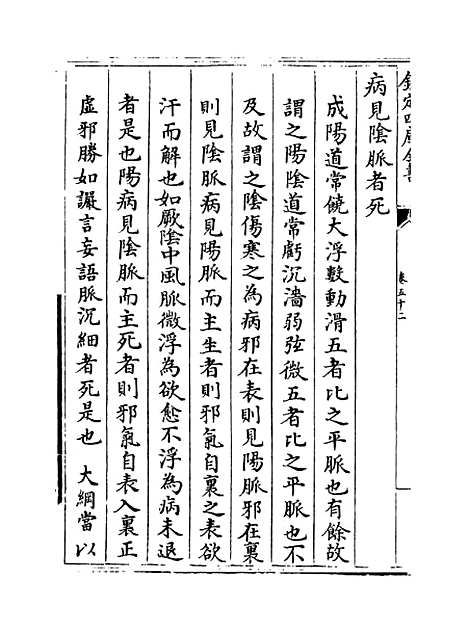 欽定四庫全書
卷五十二
病見陰脈者死
成陽道常饒大浮數動滑五者比之平脈也有餘故
謂之陽陰道常虧沉濇弱弦微五者比之平脈也不
及故謂之陰傷寒之為病邪在表則見陽脈邪在裏
則見陰脈病見陽脈而主生者則邪氣自裏之表欲
汗而解也如厥陰中風脈微浮為欲愈不浮為病未退
者是也陽病見陰脈而主死者則邪氣自表入裏正
虛邪勝如讝言妄語脈沉細者死是也　大綱當以